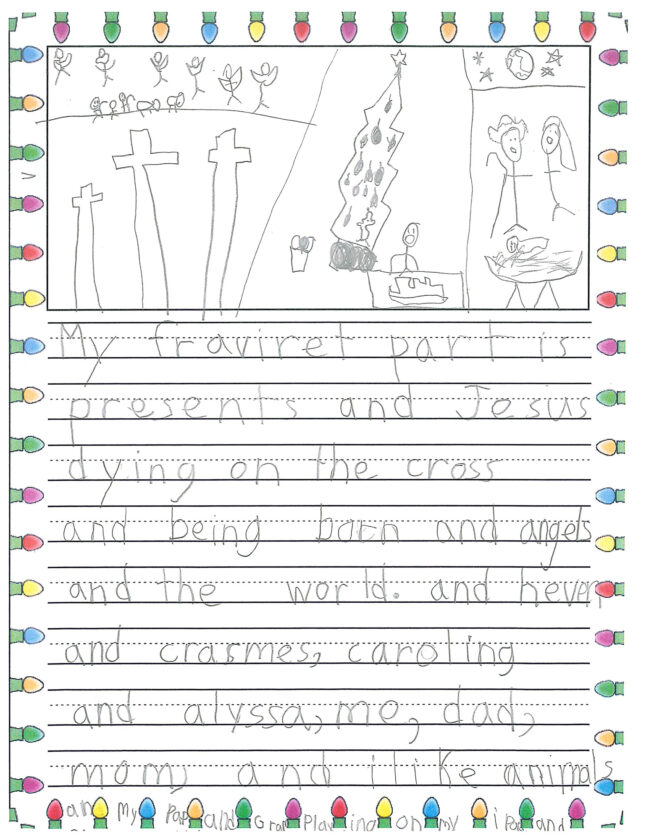 My fraviret part is
presents and Jesus
dying on the cross
and being born and angels
and the world. and heven
and crasmes, caroling
and alyssa, me, dad,
mom, and i like animals
and my Pap and Gram Playing on my iPod and